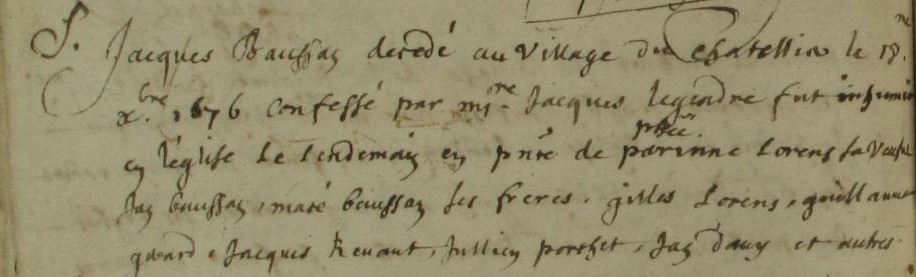 S. Jacques Baussan decedé au village du chatellier le 18.me
x.bre 1676 confessé par mi.re Jacques legendre fut inhumé
en l'eglise le lendemain en pñce de perinne Lorens sa veufve
Jan baussan, maté baussan ses freres. gilles Lorens, guillaume
Jacques Renant, Jullien porchet, Jan Davy et autres.